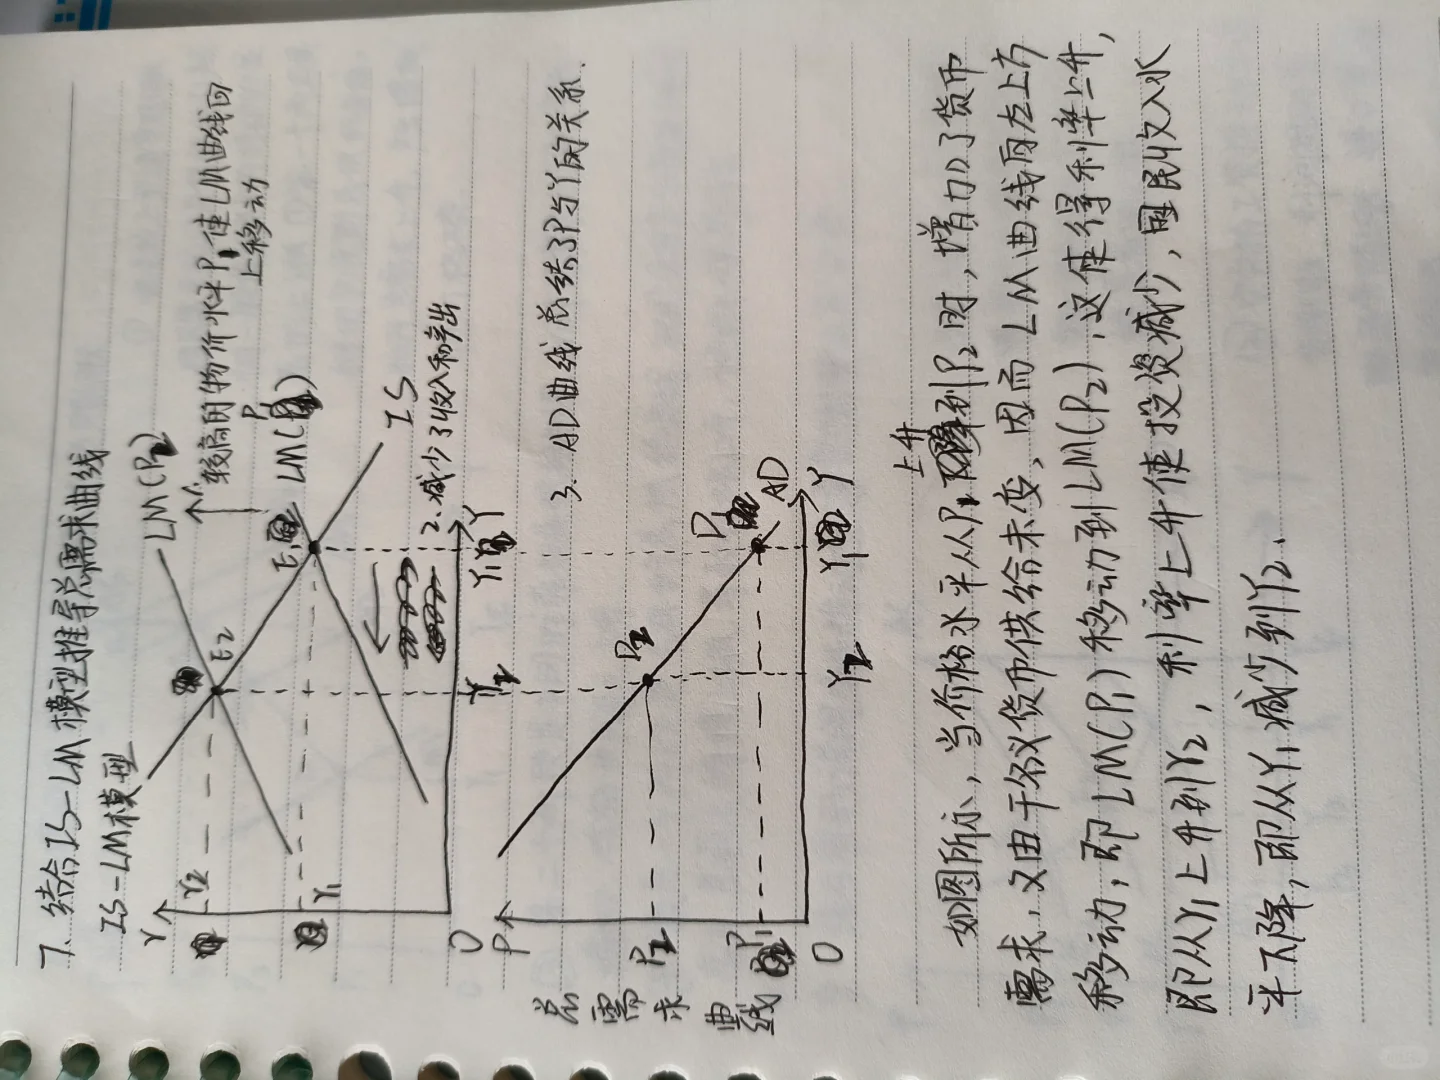 7、结合IS-LM模型推导总需求曲线
IS-LM模型
r
r2
r1
O
LM(P2)
E2
E1
LM(P1)
IS
1.较高的物价水平P1使LM曲线向
上移动
2.减少了收入和产出
Y2
Y1
Y
总需求曲线
P
P2
P1
O
D2
D1
AD
Y2
Y1
Y
3.AD曲线总结了P与Y的关系.
如图所示,当价格水平从P1上升到P2时,增加了货币
需求,又由于名义货币供给未变,因而LM曲线向左上方
移动,即LM(P1)移动到LM(P2),这使得利率上升,
即从r1上升到r2,利率上升使投资减少,国民收入水
平下降,即从Y1减少到Y2.